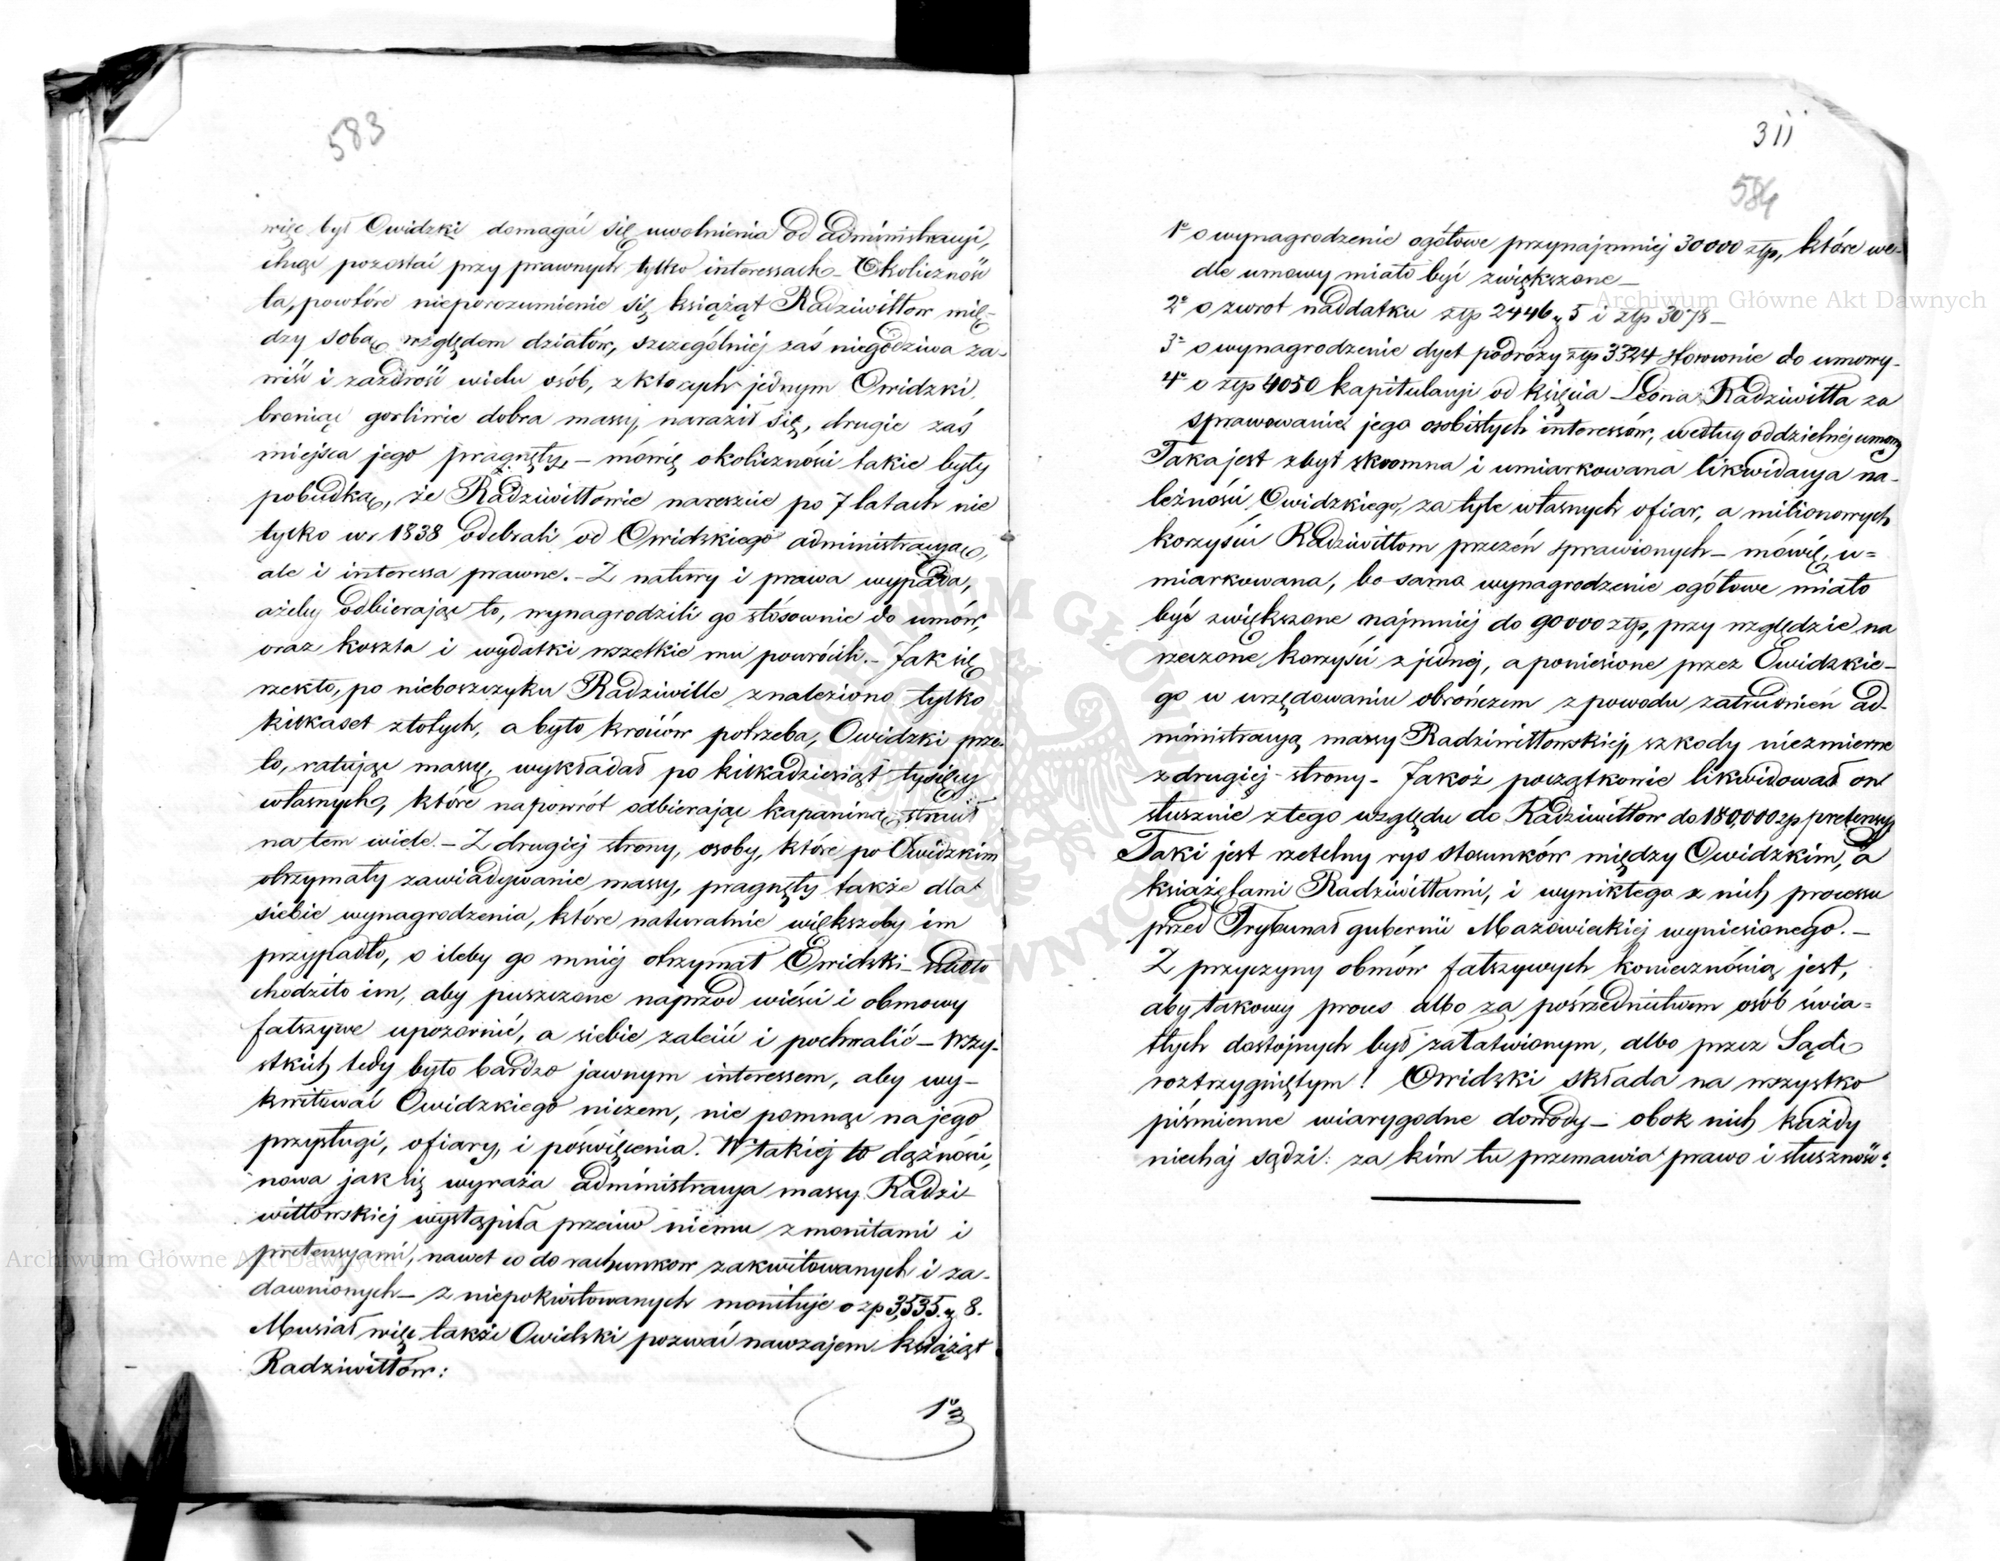 583
więc był Owidzki domagać się uwolnienia od administracyi,
chcąc pozostać przy prawnych tylko interessach – Okoliczność
ta, powtóre nieporozumienie się książąt Radziwiłłów mię-
dzy sobą względem działów, szczególniej zaś niegodziwa za-
wiść i zazdrość wielu osób, z których jednym Owidzki,
broniąc gorliwie dobra massy, naraził się, drugie zaś
miejsca jego pragnęły, – mówię okoliczności takie były
pobudką, że Radziwiłłowie nareszcie po 7 latach nie
tylko w r 1838 odebrali od Owidzkiego administracyą,
ale i interessa prawne. – Z natury i prawa wypada,
ażeby odbierając to, wynagrodzili go stósownie do umów,
oraz koszta i wydatki wszelkie mu powrócili. – Jak się
rzekło, po nieboszczyku Radziwille znaleziono tylko
kilkaset złotych, a było krociów potrzeba, Owidzki prze-
to, ratując massę, wykładał po kilkadziesiąt tysięcy
własnych, które napowrót odbierając kapaniną, stracił
na tem wiele. – Z drugiej strony, osoby, które po Owidzkim
otrzymały zawiadywanie massy, pragnęły także dla
siebie wynagrodzenia, które naturalnie większeby im
przypadło, o ileby go mniej otrzymał Owidzki – nadto
chodziło im, aby puszczone naprzód wieści i obmowy
fałszywe upozornić, a siebie zalecić i pochwalić – Wszy-
stkich tedy było bardzo jawnym interessem, aby wy-
kwitować Owidzkiego niczem, nie pomnąc na jego
przysługi, ofiary, i poświęcenia. W takiej to dążności,
nowa jak się wyraża administracya massy Radzi-
wiłłowskiej wystąpiła przeciw niemu z monitami i
pretensyami, nawet co do rachunków zakwitowanych i za-
dawnionych – z niepokwitowanych monituje o zp 3,535. g. 8.
Musiał więc także Owidzki pozwać nawzajem książąt
Radziwiłłów:
1o
311
584
1o o wynagrodzenie ogółowe przynajmniej 30000 złp, które we-
dle umowy miało być zwiększone –
2o o zwrot naddatku złp 2446 g 5 i złp 3078 –
3o o wynagrodzenie dyet podróży złp 3324 stosownie do umowy –
4o o złp 4050 kapitulacyi od księcia Leona Radziwiłła za
sprawowanie jego osobistych interessów, według oddzielnej umowy
Taka jest zbyt skromna i umiarkowana likwidacya na-
leżności Owidzkiego, za tyle własnych ofiar, a milionowych
korzyści Radziwiłłom przezeń sprawionych – mówię, u=
miarkowana, bo samo wynagrodzenie ogółowe miało
być zwiększone najmniej do 90000 złp, przy względzie na
rzeczone korzyści z jednej, a poniesione przez Owidzkie-
go w urzędowaniu obrończem z powodu zatrudnień ad-
ministracyą massy Radziwiłłowskiej, szkody niezmierne
z drugiej strony – Jakoż początkowie likwidował on
słusznie z tego względu do Radziwiłłów do 180,000 zp pretensyj
Taki jest rzetelny rys stosunków między Owidzkim, a
książętami Radziwiłłami, i wynikłego z nich processu
przed Trybunał gubernii Mazowieckiej wyniesionego. –
Z przyczyny obmów fałszywych koniecznością jest,
aby takowy proces albo za pośrednictwem osób świa=
tłych dostojnych był załatwionym, albo przez Sąd
roztrzygniętym! Owidzki składa na wszystko
piśmienne wiarygodne dowody – obok nich każdy
niechaj sądzi: za kim tu przemawia prawo i słuszność?
Archiwum Główne Akt Dawnych
Archiwum Główne Akt Dawnych